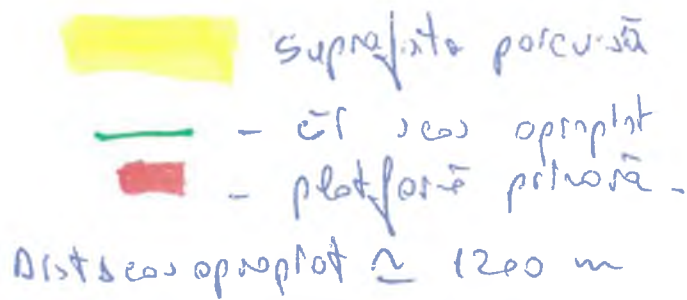 Suprafața parcursă
- căi scos apropiat
- platformă primară.
Dist scos apropiat ≃ 1200 m